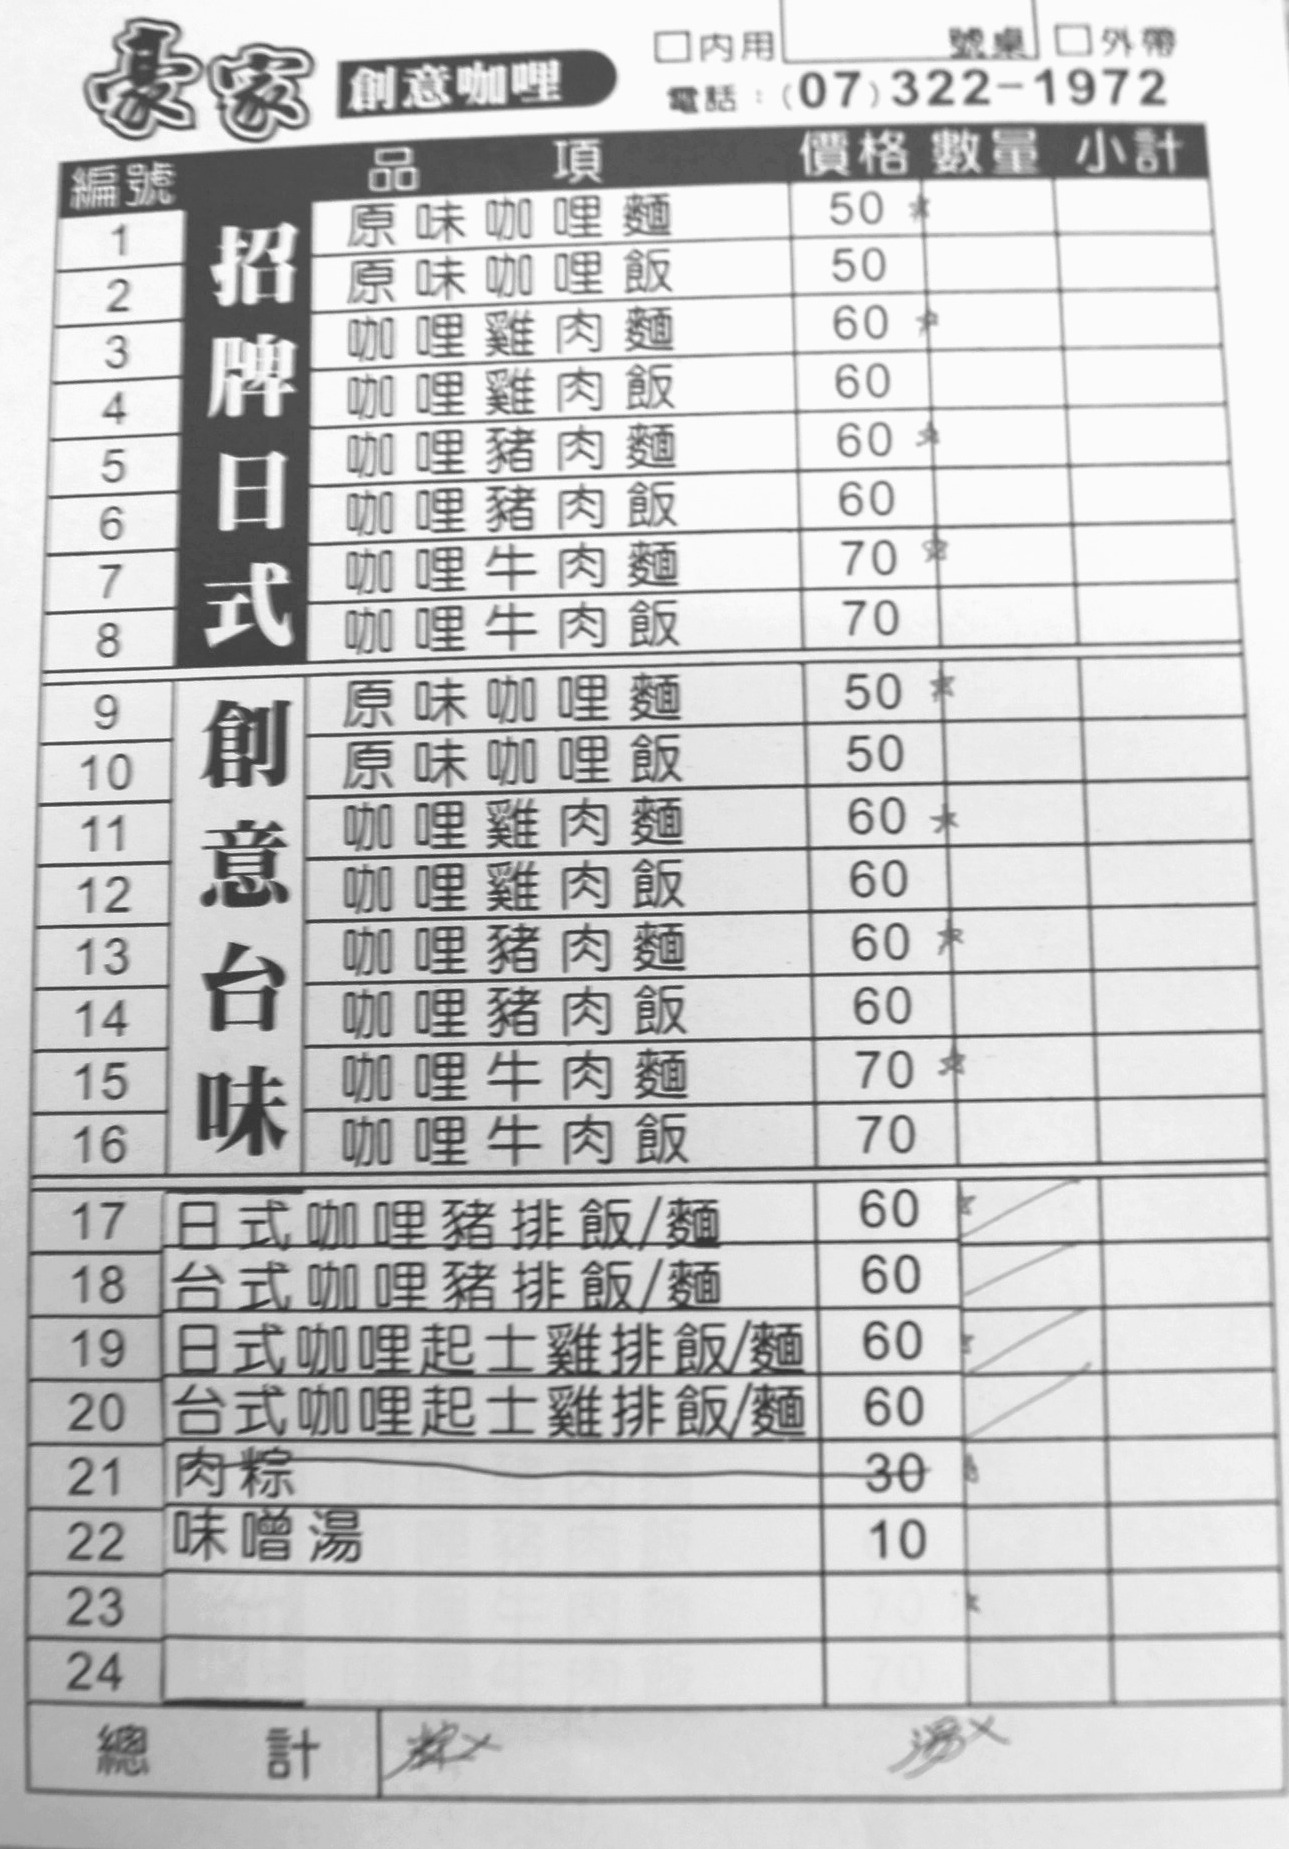 豪家 創意咖哩
□內用 號桌 □外帶
電話：(07)322-1972
編號 品項 價格 數量 小計
招牌日式
1 原味咖哩麵 50
2 原味咖哩飯 50
3 咖哩雞肉麵 60
4 咖哩雞肉飯 60
5 咖哩豬肉麵 60
6 咖哩豬肉飯 60
7 咖哩牛肉麵 70
8 咖哩牛肉飯 70
創意台味
9 原味咖哩麵 50
10 原味咖哩飯 50
11 咖哩雞肉麵 60
12 咖哩雞肉飯 60
13 咖哩豬肉麵 60
14 咖哩豬肉飯 60
15 咖哩牛肉麵 70
16 咖哩牛肉飯 70
17 日式咖哩豬排飯/麵 60
18 台式咖哩豬排飯/麵 60
19 日式咖哩起士雞排飯/麵 60
20 台式咖哩起士雞排飯/麵 60
21 肉粽 30
22 味噌湯 10
23
24
總計